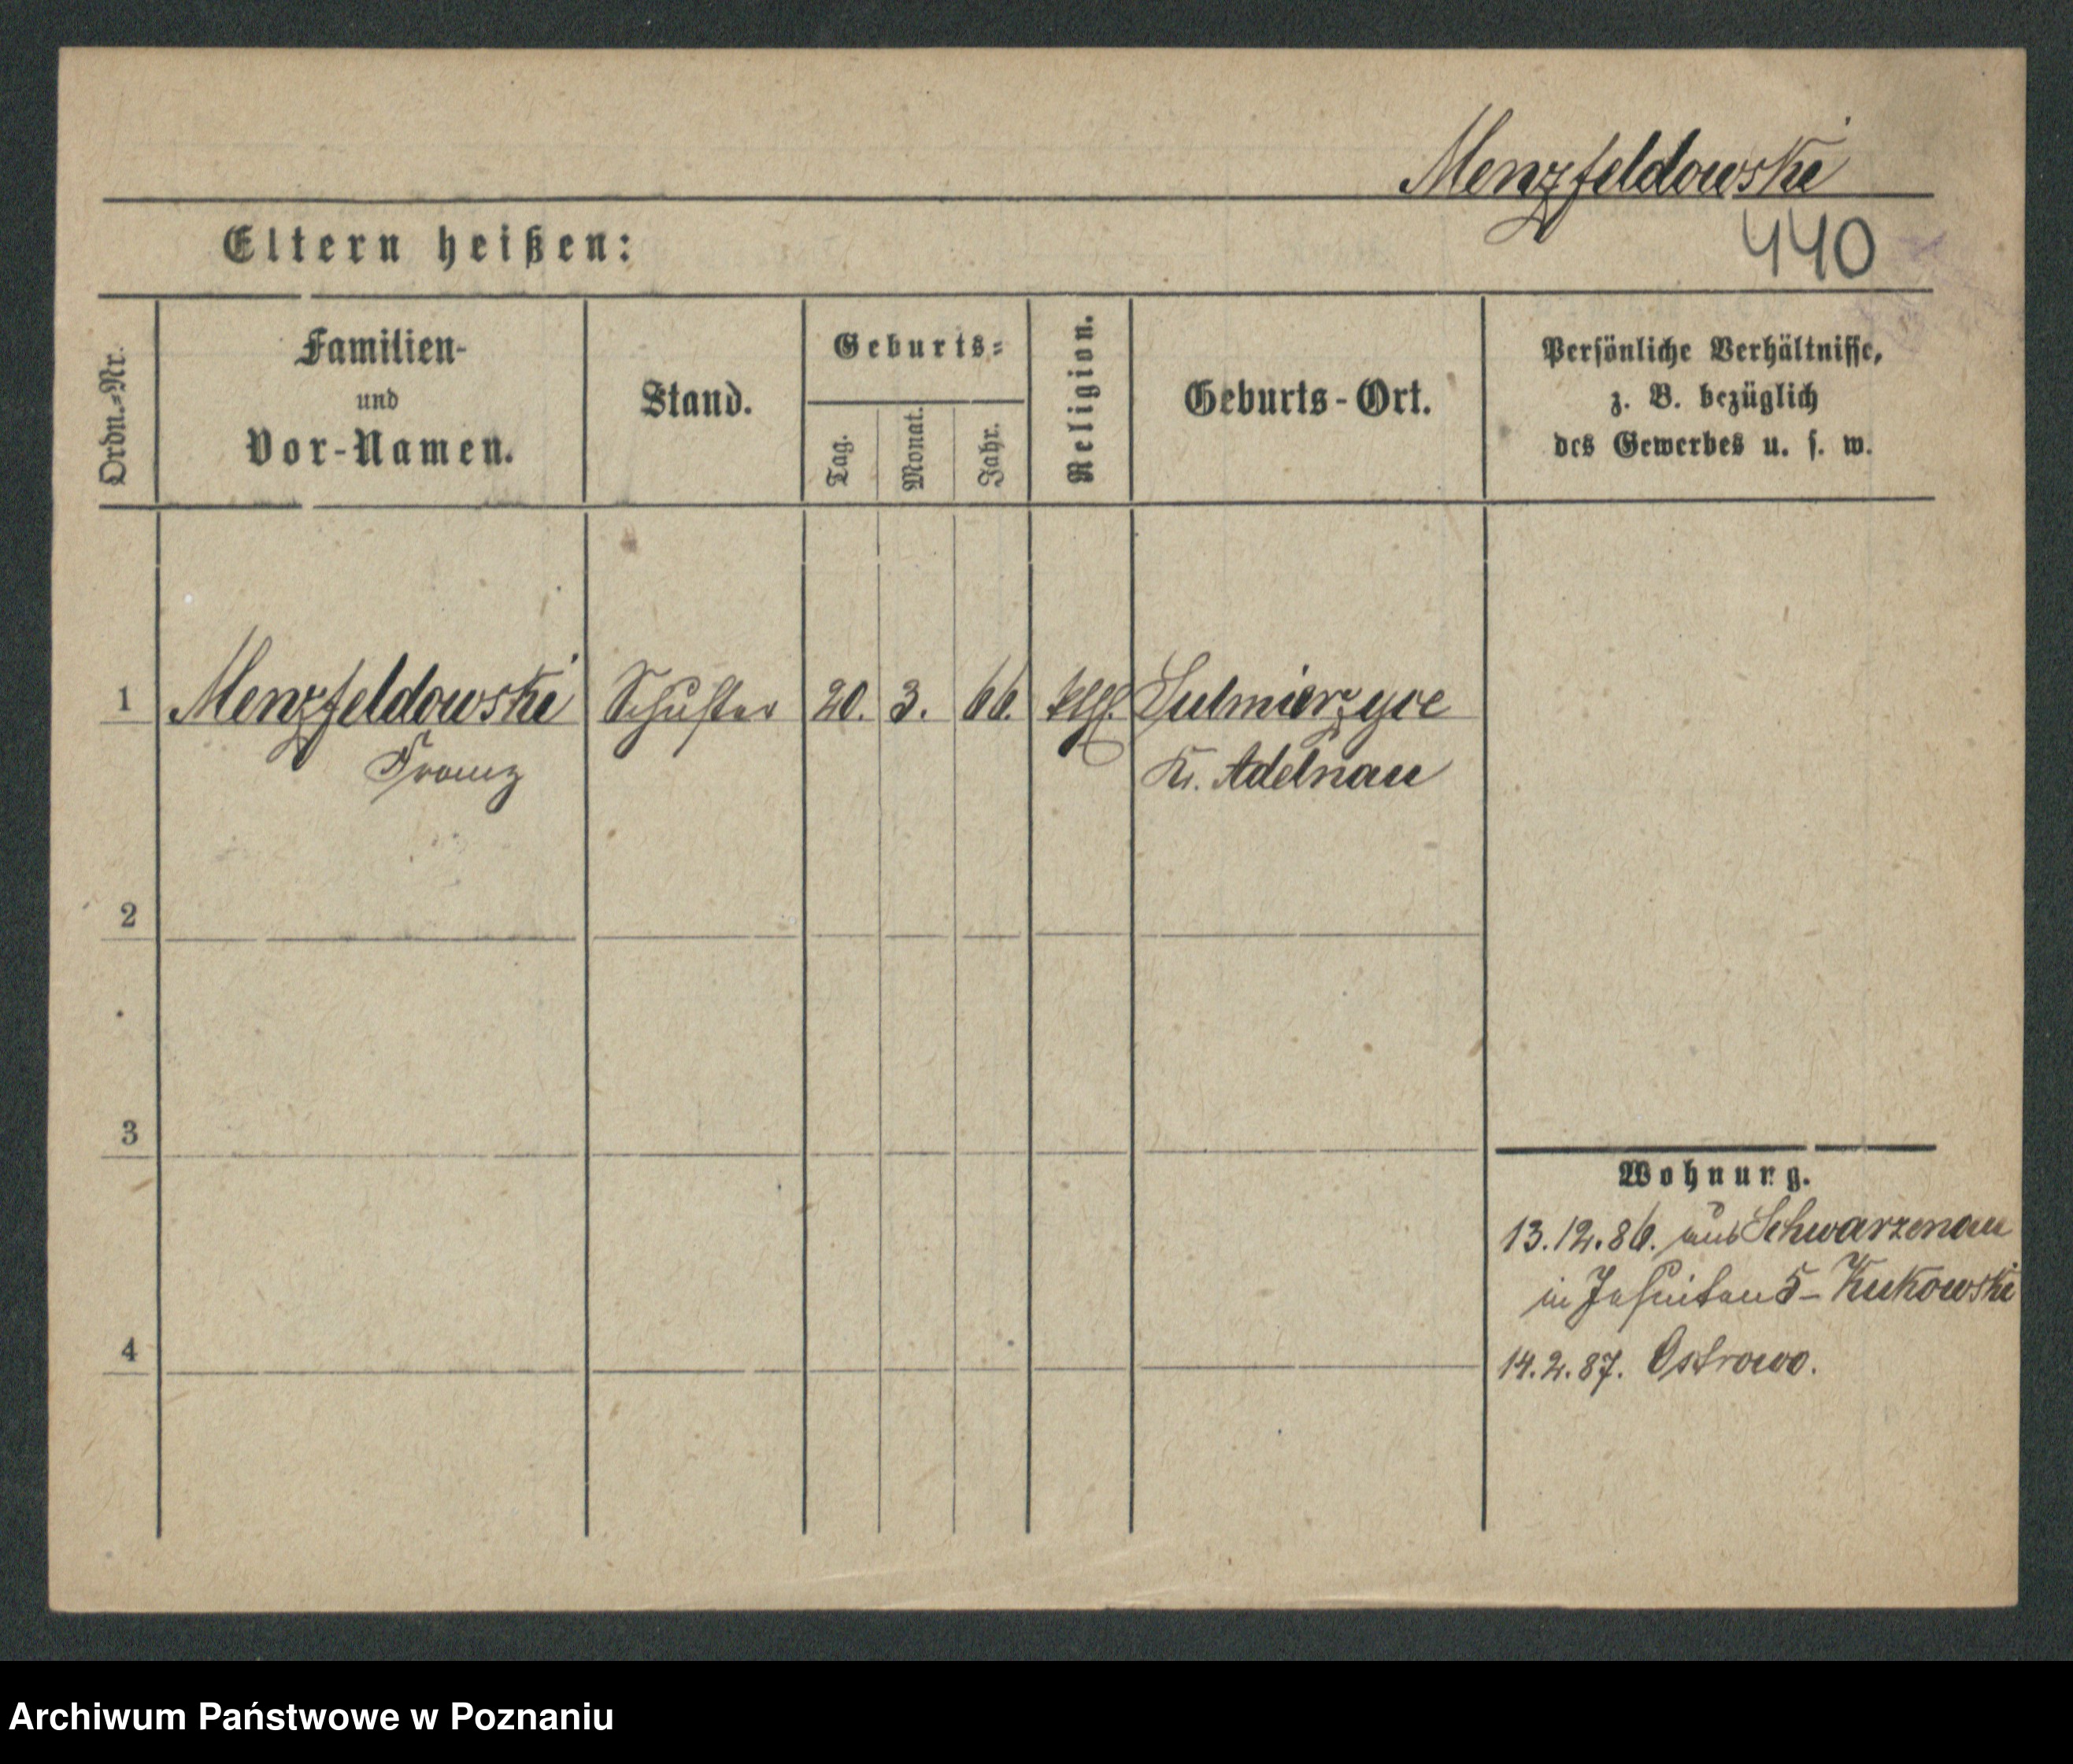 Menzfeldowski
440
Eltern heißen:
Ordn.=Nr.
Familien-
und
Vor-Namen.
Stand.
Geburts=
Tag.
Monat.
Jahr.
Religion.
Geburts-Ort.
Persönliche Verhältnisse,
z. B. bezüglich
des Gewerbes u. s. w.
1 Menzfeldowski Schuster 20. 3. 66. kth. Sulmierzyce
Franz Kr. Adelnau
2
3
4
Wohnung.
13.12.86. aus Schwarzenau
in Jesuiten 5 - Kukowski
14.2.87. Ostrowo.
Archiwum Państwowe w Poznaniu